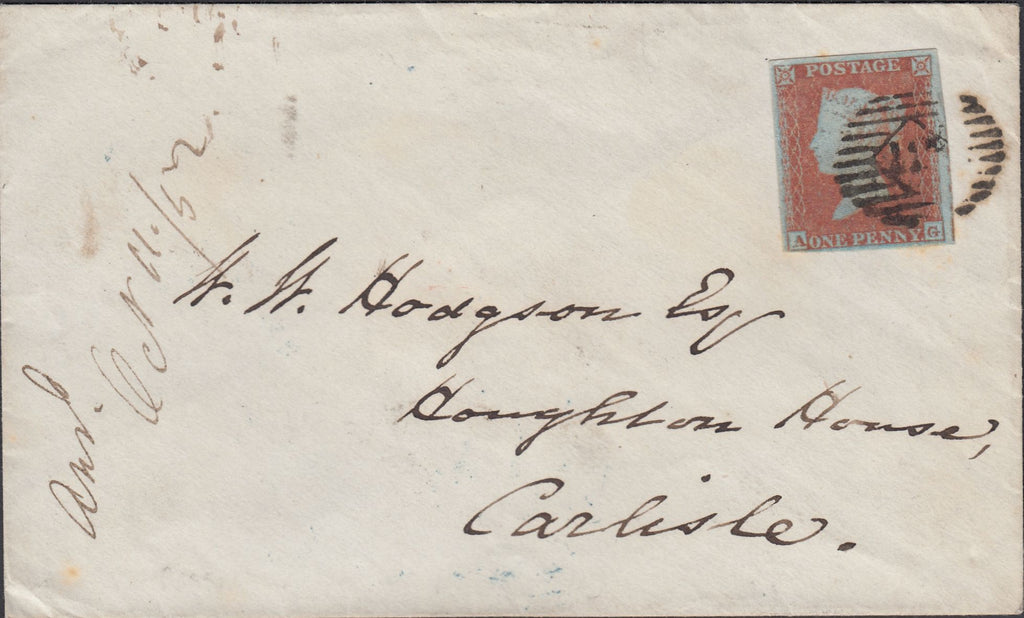 POSTAGE
A ONE PENNY G
W. W. Hodgson Esq
Houghton House,
Carlisle.